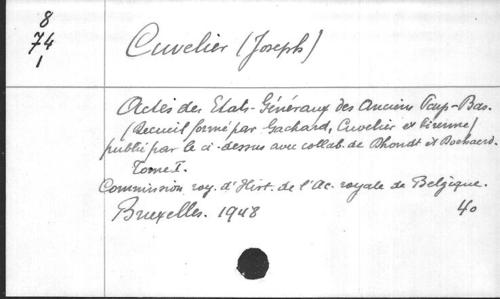 8
74
1
Cuvelier (Joseph)
Actes des Etats-Généraux des Anciens Pays-Bas.
(Recueil formé par Gachard, Cuvelier et Pirenne)
publié par le ci-dessus avec collab. de Dhondt et Doehaerd.
Tome I.
Commission roy. d'Hist. de l'Ac. royale de Belgique.
Bruxelles. 1948 4o